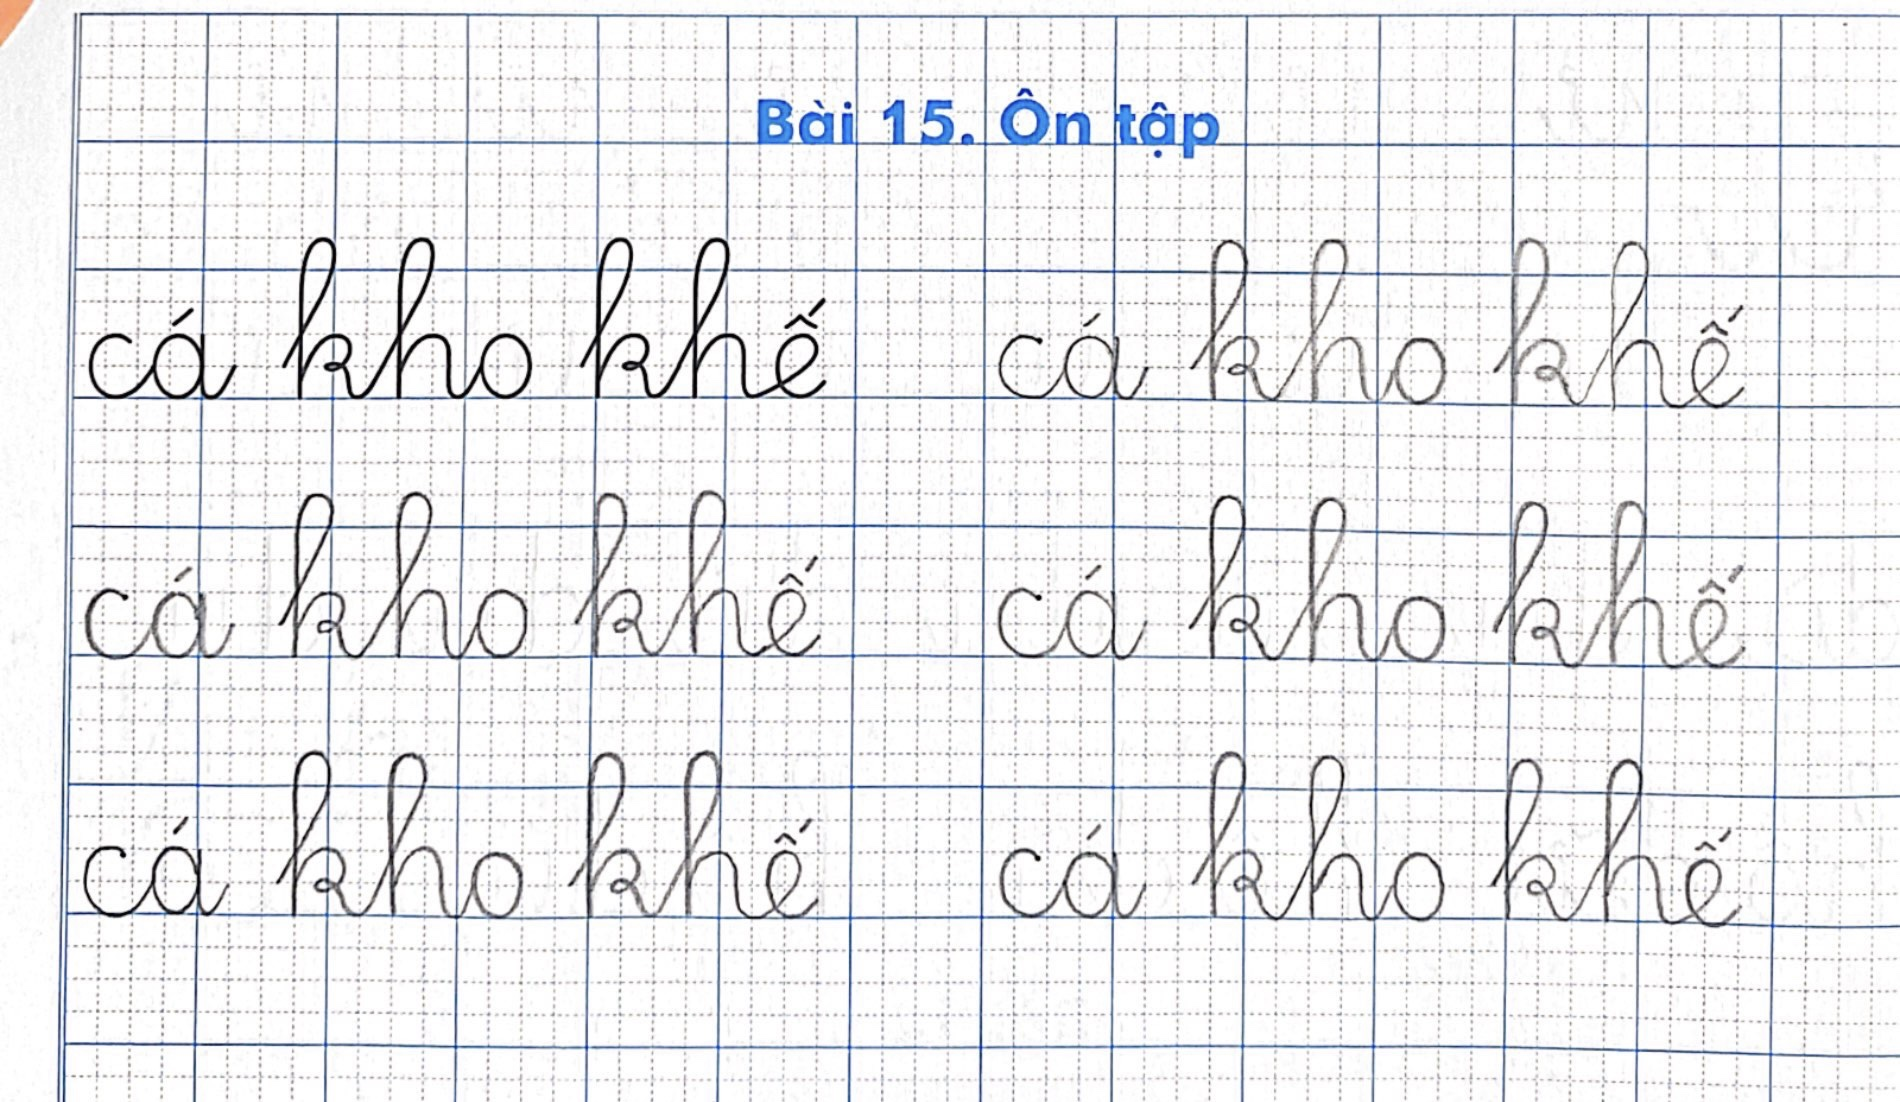 Bài 15. Ôn tập
cá kho khế cá kho khế
cá kho khế cá kho khế
cá kho khế cá kho khế